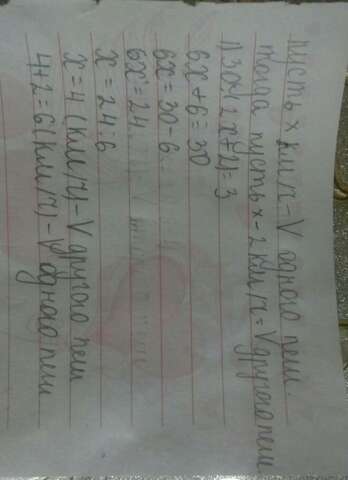 пусть x км/ч - V одного пеш.
тогда пусть x - 2 км/ч = V другого пеш
1) 30:(2x+2)=3
6x+6=30
6x=30-6
6x=24
x=24:6
x=4 (км/ч) - V другого пеш
4+2=6 (км/ч) - V одного пеш